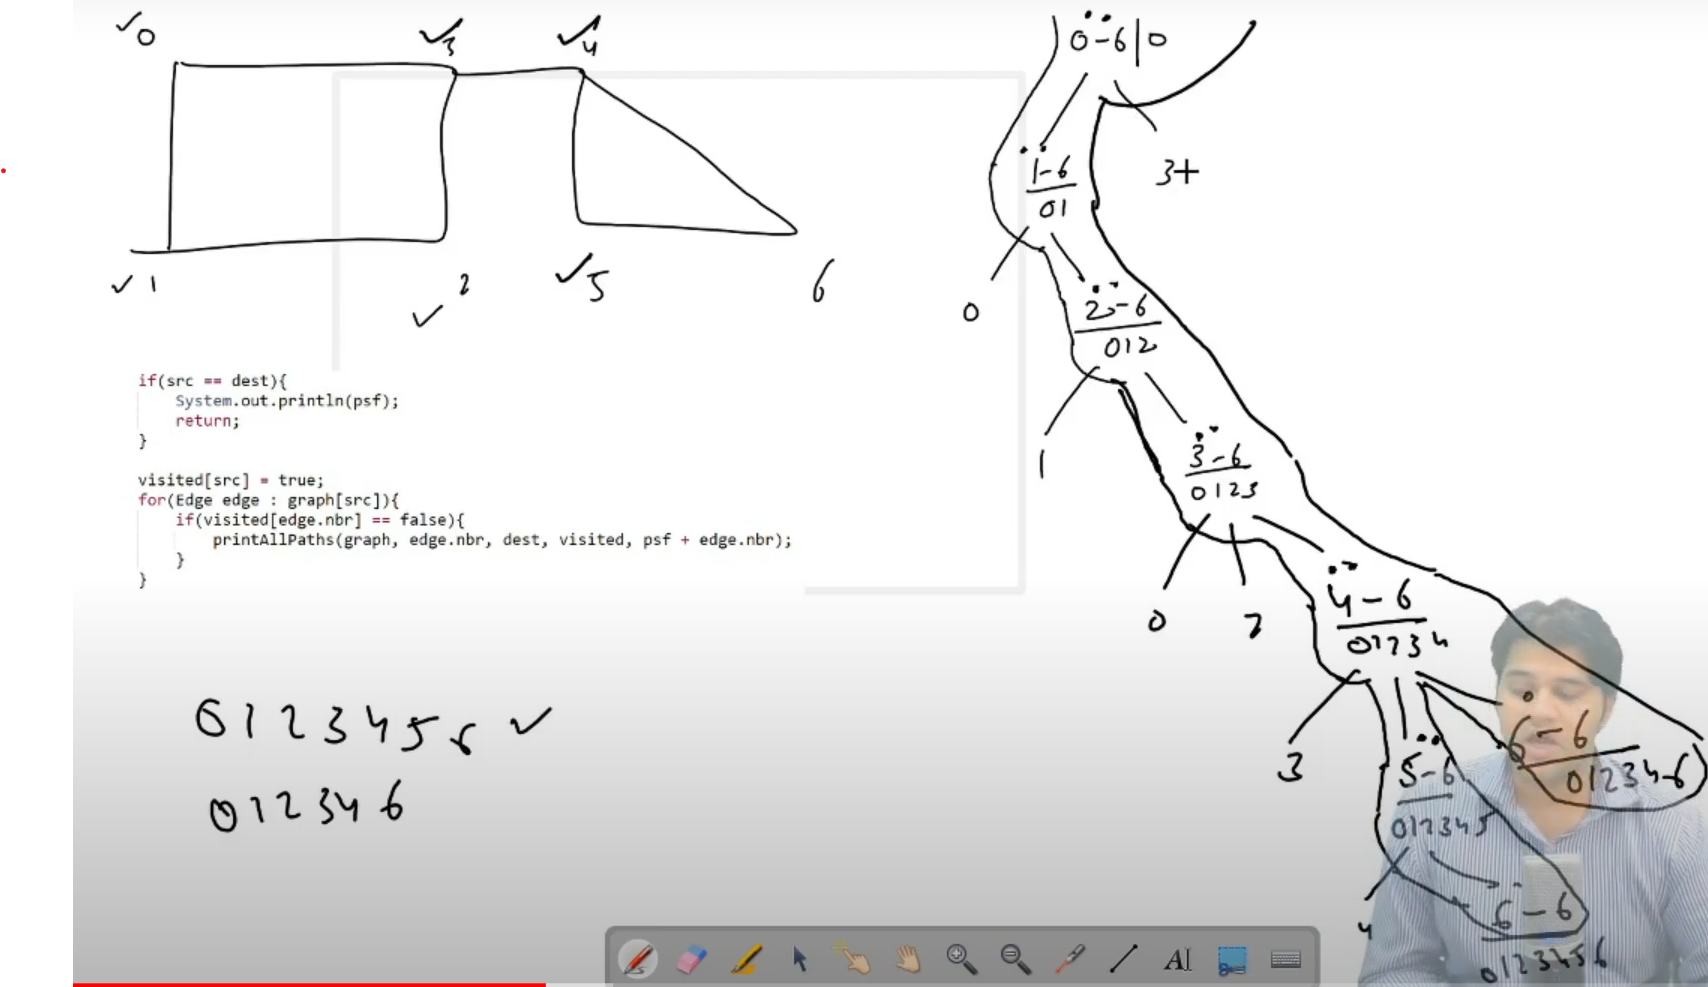 0 3 4
1 2 5 6
if(src == dest){
System.out.println(psf);
return;
}
visited[src] = true;
for(Edge edge : graph[src]){
if(visited[edge.nbr] == false){
printAllPaths(graph, edge.nbr, dest, visited, psf + edge.nbr);
}
}
0 1 2 3 4 5 6
0 1 2 3 4 6
0-6|0
1-6
01
3+
0
2-6
012
1
3-6
0123
0 2
4-6
01234
3
5-6
012345
6-6
012346
4
6-6
0123456
AI